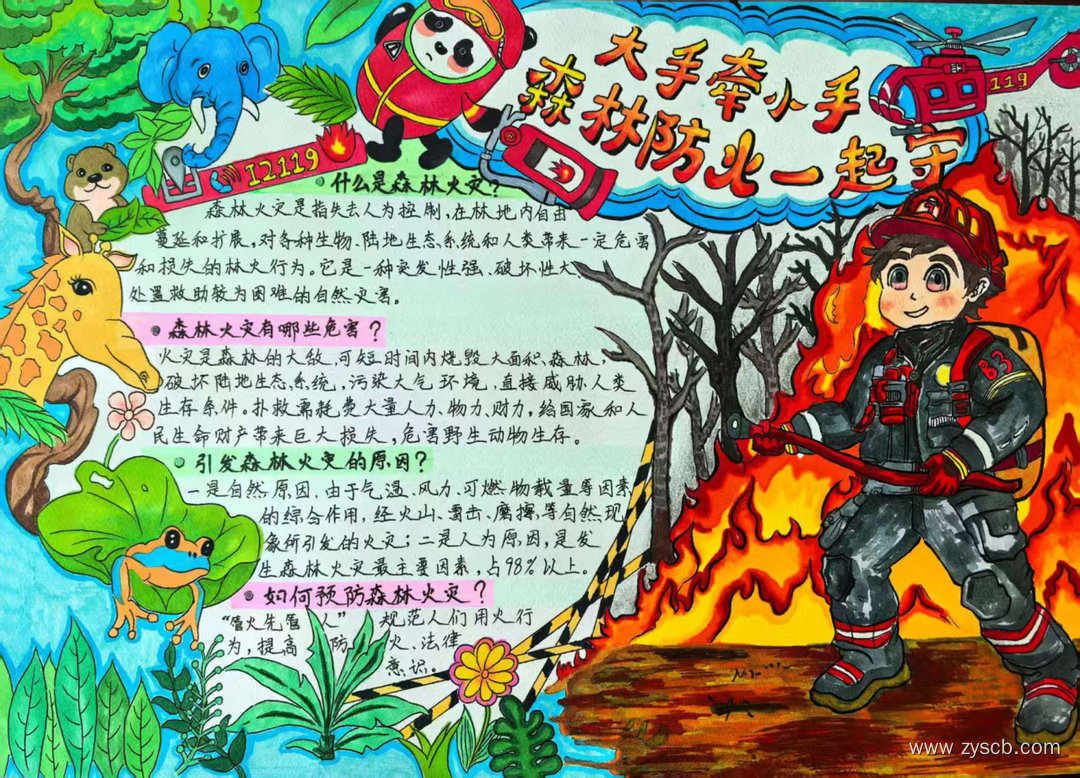 大手牵小手
森林防火一起守
119
12119
什么是森林火灾?
森林火灾是指失去人为控制,在林地内自由
蔓延和扩展,对各种生物、陆地生态系统和人类带来一定危害
和损失的林火行为。它是一种突发性强、破坏性大
处置救助较为困难的自然灾害。
森林火灾有哪些危害?
火灾是森林的大敌,可短时间内烧毁大面积森林,
破坏陆地生态系统,污染大气环境,直接威胁人类
生存条件。扑救需耗费大量人力、物力、财力,给国家和人
民生命财产带来巨大损失,危害野生动物生存。
引发森林火灾的原因?
一是自然原因,由于气温、风力、可燃物载量等因素
的综合作用,经火山、雷击、磨擦等自然现
象所引发的火灾;二是人为原因,是发
生森林火灾最主要因素,占98%以上。
如何预防森林火灾?
“管火先管人”规范人们用火行
为,提高防火、法律
意识。
83
www.zyscb.com